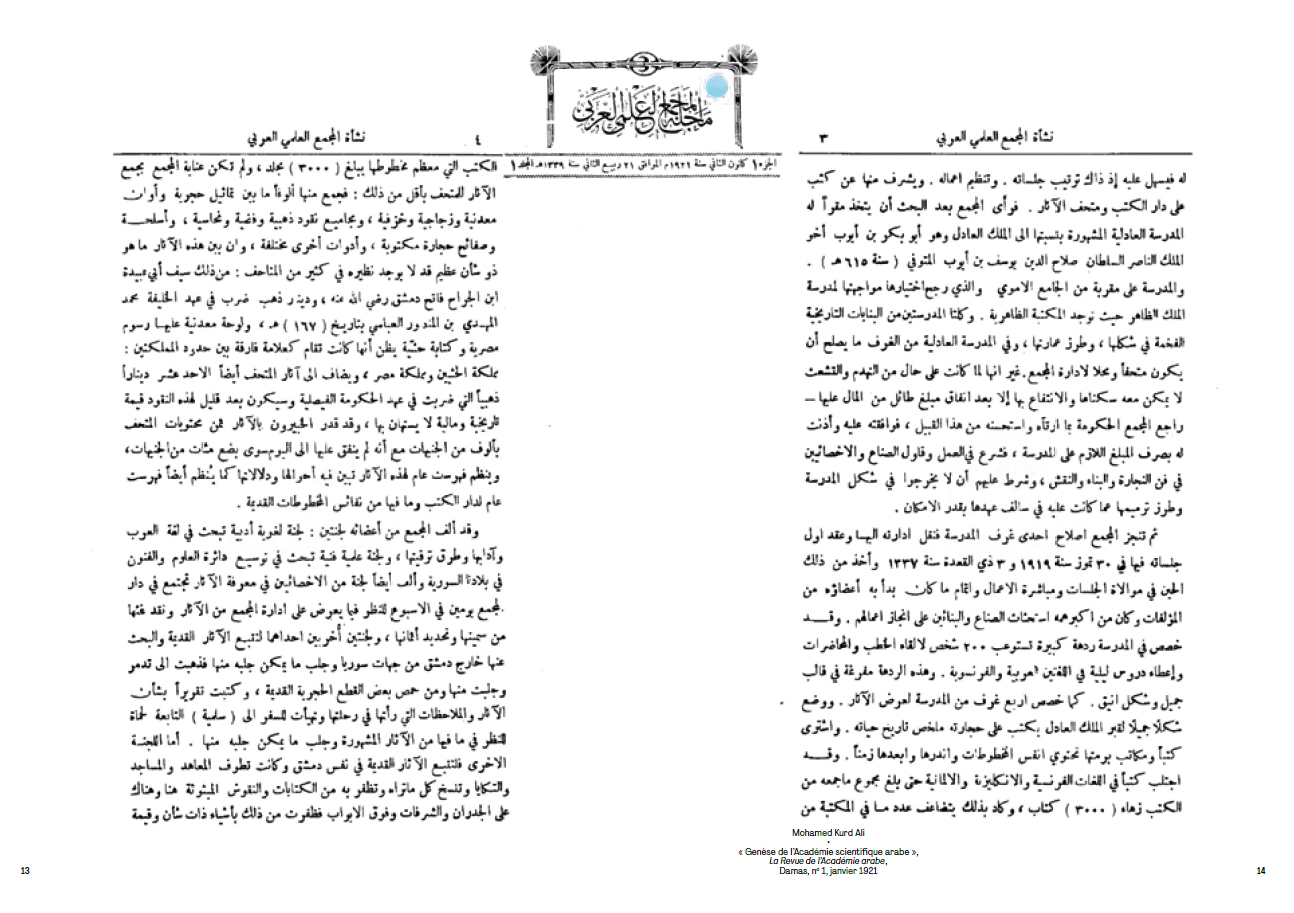 مجلة المجمع العلمي العربي
الجزء ١ كانون الثاني سنة ١٩٢١ م الموافق ٢١ ربيع الثاني سنة ١٣٣٩ هـ المجلد ١
٣
نشأة المجمع العلمي العربي
له فيسهل عليه إذ ذاك ترتيب جلساته . وتنظيم اعماله . ويشرف منها عن كثب
على دار الكتب ومتحف الآثار . فرأى المجمع بعد البحث أن يتخذ مقراً له
المدرسة العادلية المشهورة بنسبتها الى الملك العادل وهو أبو بكر بن أيوب أخو
الملك الناصر السلطان صلاح الدين يوسف بن أيوب المتوفي ( سنة ٦١٥ هـ ) .
والمدرسة على مقربة من الجامع الاموي والذي رجح اختيارها مواجهتها لمدرسة
الملك الظاهر حيث توجد المكتبة الظاهرية . وكلتا المدرستين من البنايات التاريخية
الفخمة في شكلها ، وطرز عمارتها ، وفي المدرسة العادلية من الغرف ما يصلح أن
يكون متحفاً ومحلا لادارة المجمع . غير انها لما كانت على حال من التهدم والتشعث
لا يمكن معه سكناها والانتفاع بها إلا بعد انفاق مبلغ طائل من المال عليها —
راجع المجمع الحكومة بما ارتآه واستحسنه من هذا القبيل ، فوافقته عليه وأذنت
له بصرف المبلغ اللازم على المدرسة ، فشرع في العمل وقاول الصناع والاخصائيين
في فن النجارة والبناء والنقش ، وشرط عليهم أن لا يخرجوا في شكل المدرسة
وطرز ترميمها عما كانت عليه في سالف عهدها بقدر الامكان .
ثم تنجز المجمع اصلاح احدى غرف المدرسة فنقل ادارته اليها وعقد اول
جلساته فيها في ٣٠ تموز سنة ١٩١٩ و ٣ ذي القعدة سنة ١٣٣٧ وأخذ من ذلك
الحين في موالاة الجلسات ومباشرة الاعمال واتمام ما كان بدأ به أعضاؤه من
المؤلفات وكان من اكبر همه استحثاث الصناع والبنائين على انجاز اعمالهم . وقـــد
خصص في المدرسة ردهة كبيرة تستوعب ٢٠٠ شخص لالقاء الخطب والمحاضرات
وإعطاء دروس ليلية في اللغتين العربية والفرنسوية . وهذه الردهة مفرغة في قالب
جميل وشكل انيق . كما خصص اربع غرف من المدرسة لعرض الآثار . ووضع
شكلاً جميلاً لقبر الملك العادل يكتب على حجارته ملخص تاريخ حياته . واشترى
كتباً ومكاتب برمتها تحتوي انفس المخطوطات واندرها وابعدها زمناً . وقـــد
اجتلب كتباً في اللغات الفرنسية والانكليزية والالمانية حتى بلغ مجموع ماجمعه من
الكتب زهاء ( ٣٠٠٠ ) كتاب ، وكاد بذلك يتضاعف عدد مـا في المكتبة من
٤
نشأة المجمع العلمي العربي
الكتب التي معظم مخطوطها يبلغ ( ٣٠٠٠ ) مجلد ، ولم تكن عناية المجمع بجمع
الآثار للمتحف بأقل من ذلك : فجمع منها ألوفاً ما بين تماثيل حجرية وأوان
معدنية وزجاجية وخزفية ، ومجاميع نقود ذهبية وفضية ونحاسية ، وأسلحـــة
وصفائح حجارة مكتوبة ، وأدوات أخرى مختلفة ، وان بين هذه الآثار ما هو
ذو شأن عظيم قد لا يوجد نظيره في كثير من المتاحف : من ذلك سيف أبي عبيدة
ابن الجراح فاتح دمشق رضي الله عنه ، ودينار ذهب ضرب في عهد الخليفة محمد
المهدي بن المنصور العباسي بتاريخ ( ١٦٧ ) هـ ، ولوحة معدنية عليها رسوم
مصرية وكتابة حثية يظن أنها كانت تقام كعلامة فارقة بين حدود المملكتين :
مملكة الحثيين ومملكة مصر ، ويضاف الى آثار المتحف أيضاً الاحد عشر ديناراً
ذهبياً التي ضربت في عهد الحكومة الفيصلية وسيكون بعد قليل لهذه النقود قيمة
تاريخية ومالية لا يستهان بها ، وقد قدر الخبيرون بالآثار ثمن محتويات المتحف
بألوف من الجنيهات مع أنه لم ينفق عليها الى اليوم سوى بضع مئات من الجنيهات ،
وينظم فهرست عام لهذه الآثار تبين فيه أحوالها ودلالاتها كما يُنظم أيضاً فهرست
عام لدار الكتب وما فيها من نفائس المخطوطات القديمة .
وقد ألف المجمع من أعضائه لجنتين : لجنة لغوية أدبية تبحث في لغة العرب
وآدابها وطرق ترقيتها ، ولجنة علمية فنية تبحث في توسيع دائرة العلوم والفنون
في بلادنا السورية وألف أيضاً لجنة من الاخصائين في معرفة الآثار تجتمع في دار
المجمع يومين في الاسبوع للنظر فيما يعرض على ادارة المجمع من الآثار ونقد غثها
من سمينها وتحديد أثمانها ، ولجنتين أُخريين احداهما لتتبع الآثار القديمة والبحث
عنها خارج دمشق من جهات سوريا وجلب ما يمكن جلبه منها فذهبت الى تدمر
وجلبت منها ومن حمص بعض القطع الحجرية القديمة ، وكتبت تقريراً بشأن
الآثار والملاحظات التي رأتها في رحلتها وتهيأت للسفر الى ( سلمية ) التابعة لحماة
للنظر في ما فيها من الآثار المشهورة وجلب ما يمكن جلبه منها . أما اللجنـة
الاخرى فلتتبع الآثار القديمة في نفس دمشق وكانت تطوف المعاهد والمساجد
والتكايا وتنسخ كل ماتراه وتظفر به من الكتابات والنقوش المبثوثة هنا وهناك
على الجدران والشرفات وفوق الابواب فظفرت من ذلك بأشياء ذات شأن وقيمة
Mohamed Kurd Ali
•
« Genèse de l'Académie scientifique arabe »,
La Revue de l'Académie arabe,
Damas, nº 1, janvier 1921
13
14